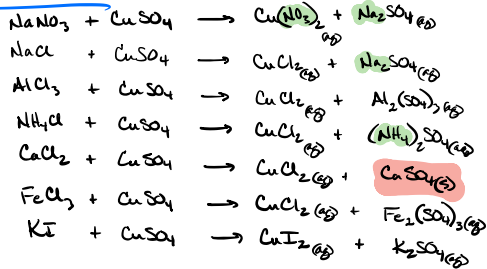 NaNO₃ + CuSO₄ → Cu(NO₃)₂ (aq) + Na₂SO₄ (aq)
NaCl + CuSO₄ → CuCl₂ (aq) + Na₂SO₄ (aq)
AlCl₃ + CuSO₄ → CuCl₂ (aq) + Al₂(SO₄)₃ (aq)
NH₄Cl + CuSO₄ → CuCl₂ (aq) + (NH₄)₂SO₄ (aq)
CaCl₂ + CuSO₄ → CuCl₂ (aq) + CaSO₄ (s)
FeCl₃ + CuSO₄ → CuCl₂ (aq) + Fe₂(SO₄)₃ (aq)
KI + CuSO₄ → CuI₂ (aq) + K₂SO₄ (aq)